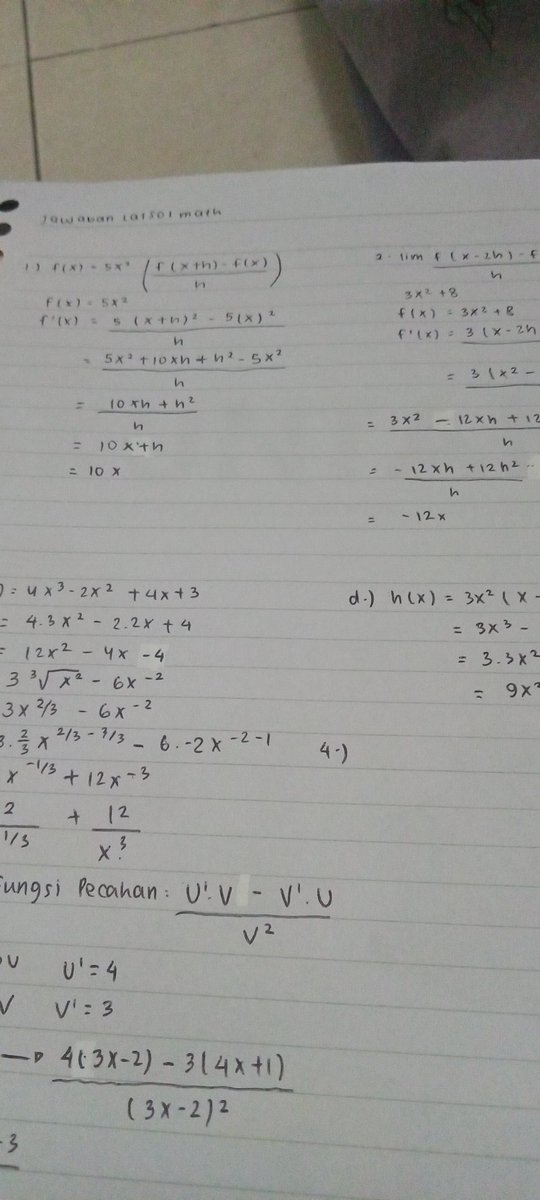 Jawaban latsol math
1) f(x) = 5x² ( f(x+h) - f(x) / h )
f(x) = 5x²
f'(x) = 5 (x+h)² - 5(x)² / h
= 5x² + 10xh + h² - 5x² / h
= 10xh + h² / h
= 10x + h
= 10x
2. lim f(x-2h) - f / h
3x² + 8
f(x) = 3x² + 8
f'(x) = 3(x-2h
= 3(x² -
= 3x² - 12xh + 12 / h
= -12xh + 12h² / h
= -12x
) = 4x³ - 2x² + 4x + 3
= 4.3x² - 2.2x + 4
= 12x² - 4x - 4
3 ³√x² - 6x⁻²
3x^2/3 - 6x⁻²
3. 2/3 x^2/3 - 3/3 - 6.-2x^-2-1
x^-1/3 + 12x⁻³
2 / 1/3 + 12 / x³
d.) h(x) = 3x² (x -
= 3x³ -
= 3.3x²
= 9x²
4.)
Fungsi Pecahan: U'.V - V'.U / V²
U U' = 4
V V' = 3
→ 4(3x-2) - 3(4x+1) / (3x-2)²
-3